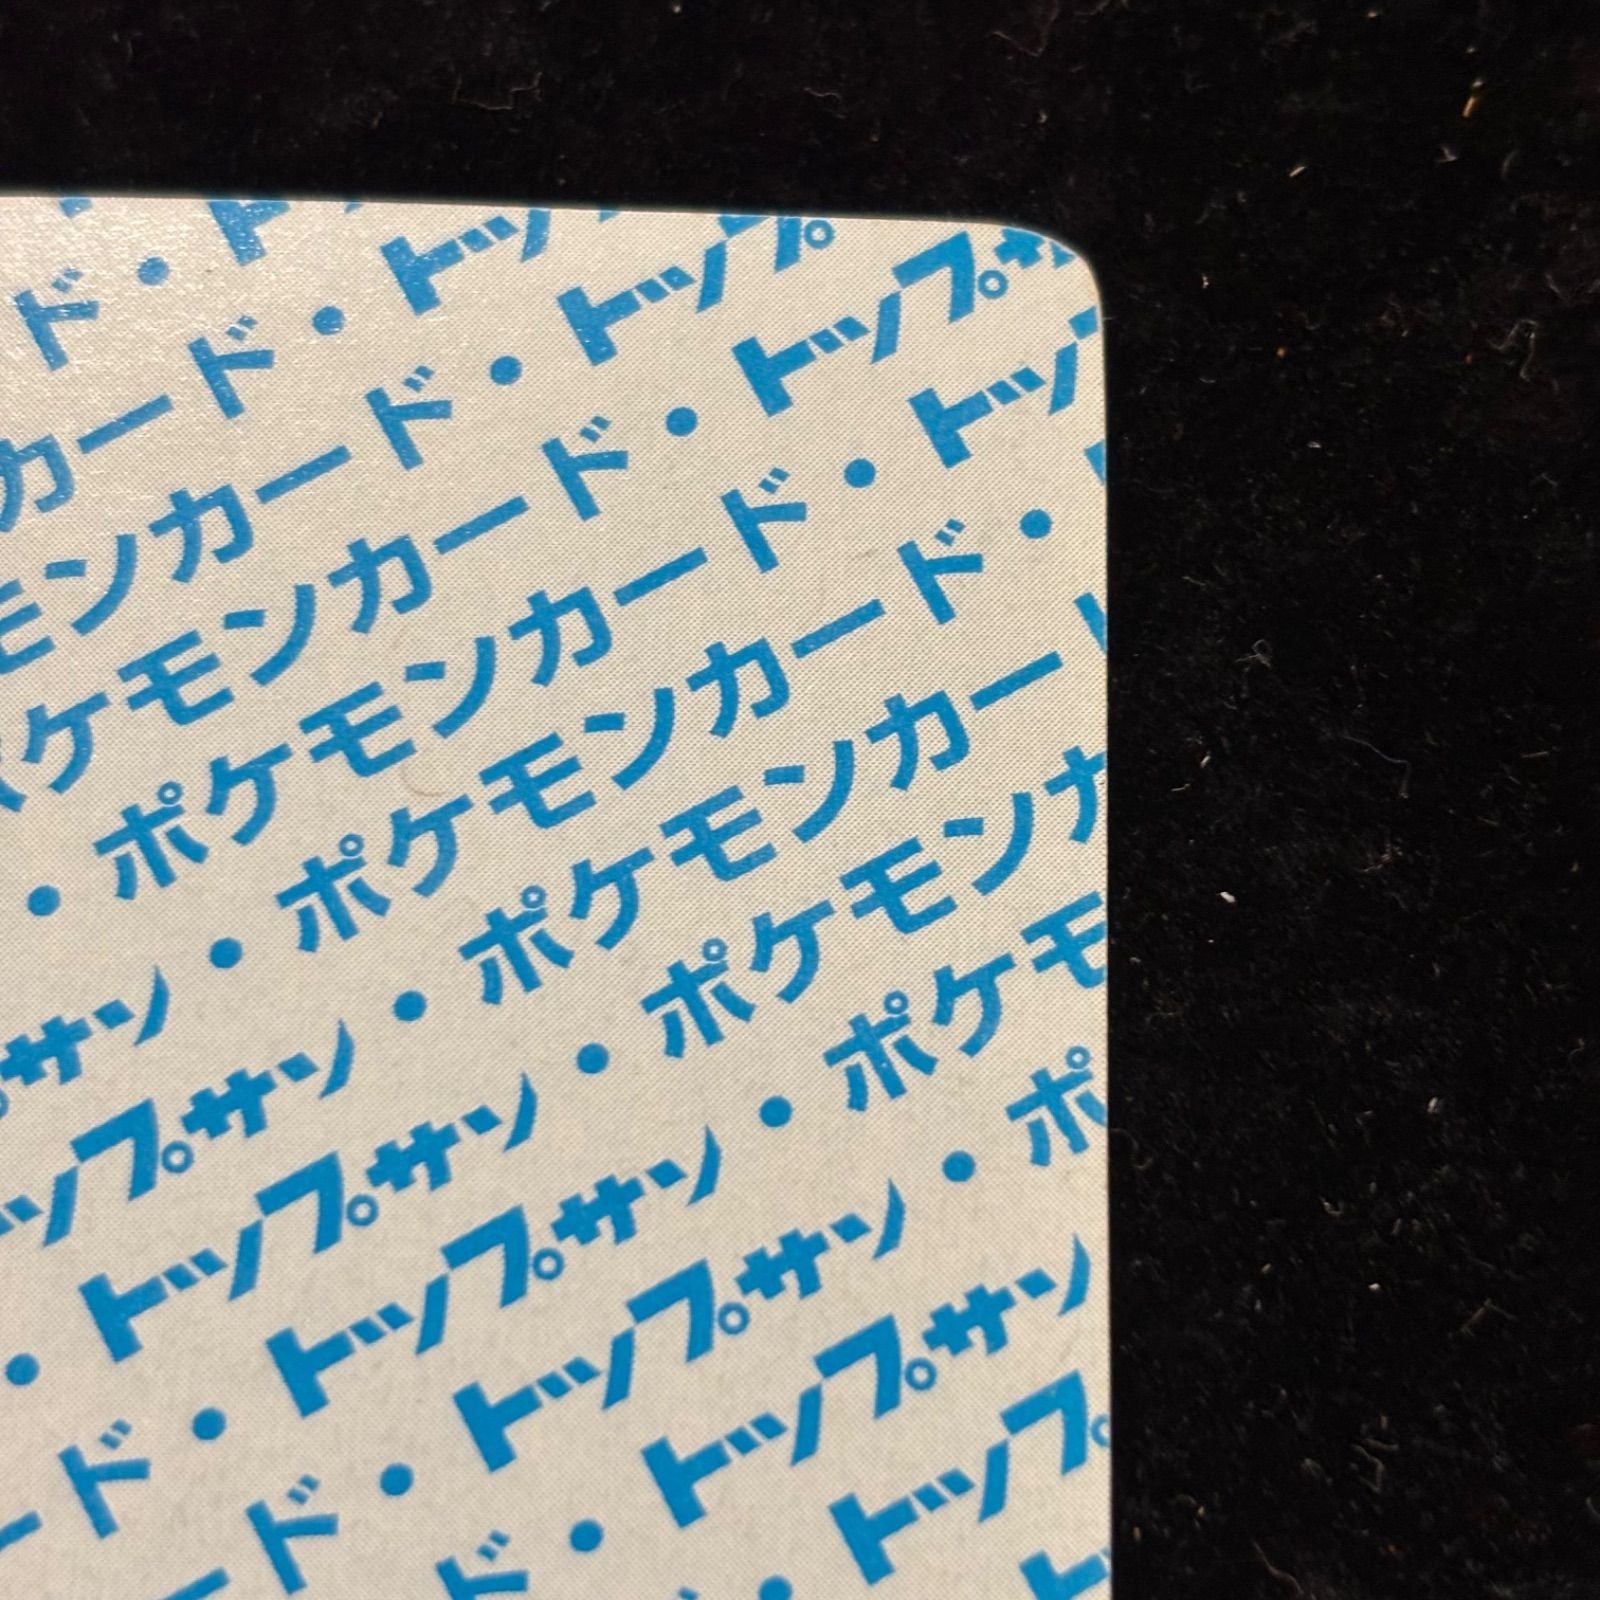 ド・ト
カード・トッ
モンカード・トップ
ケモンカード・トップサ
・ポケモンカード・トッ
サン・ポケモンカード・
ップサン・ポケモンカー
・トップサン・ポケモンカ
ード・トップサン・ポケモ
ード・トップサン・ポ
ド・トップサン
・トップ
ト